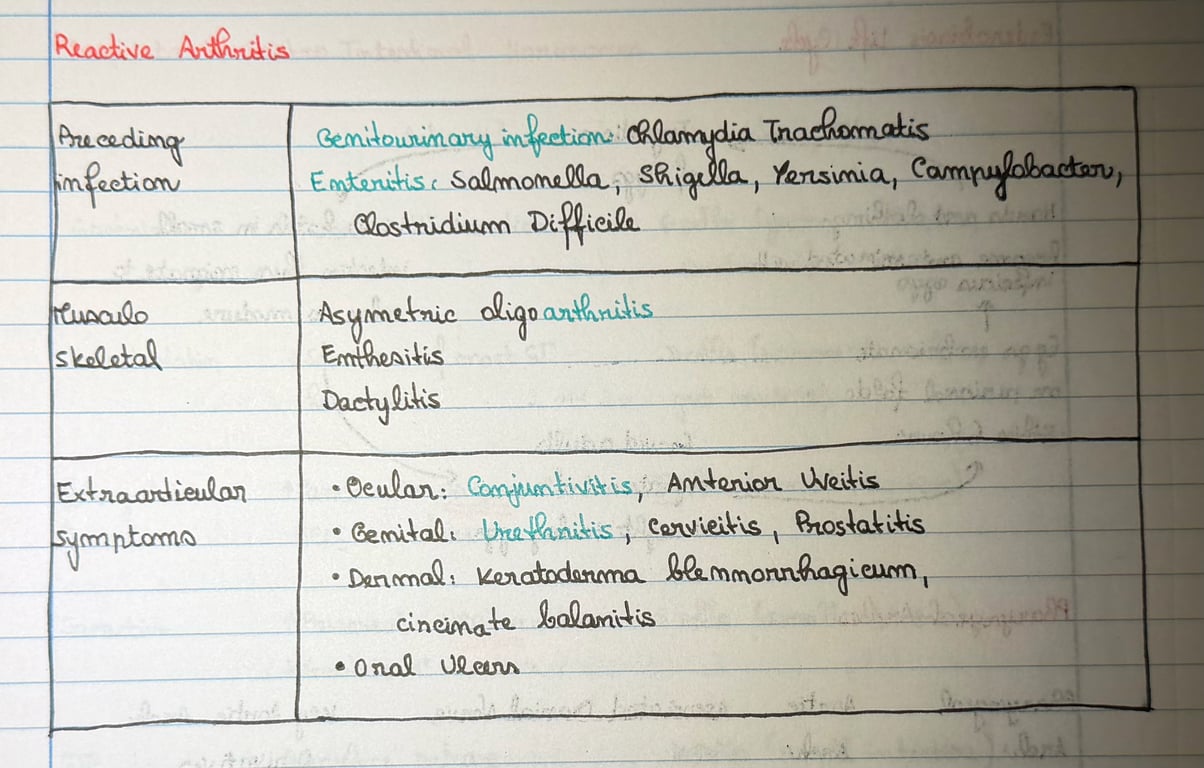 Reactive Arthritis
Preceding infection
Genitourinary infection: Chlamydia Trachomatis
Enteritis: Salmonella, Shigella, Yersinia, Campylobacter,
Clostridium Difficile
Musculo skeletal
Asymetric oligoarthritis
Enthesitis
Dactylitis
Extraarticular symptoms
• Ocular: Conjuntivitis, Anterior Uveitis
• Genital: Urethritis, Cervicitis, Prostatitis
• Dermal: Keratoderma blemmorrhagicum,
circinate balanitis
• Oral Ulcers